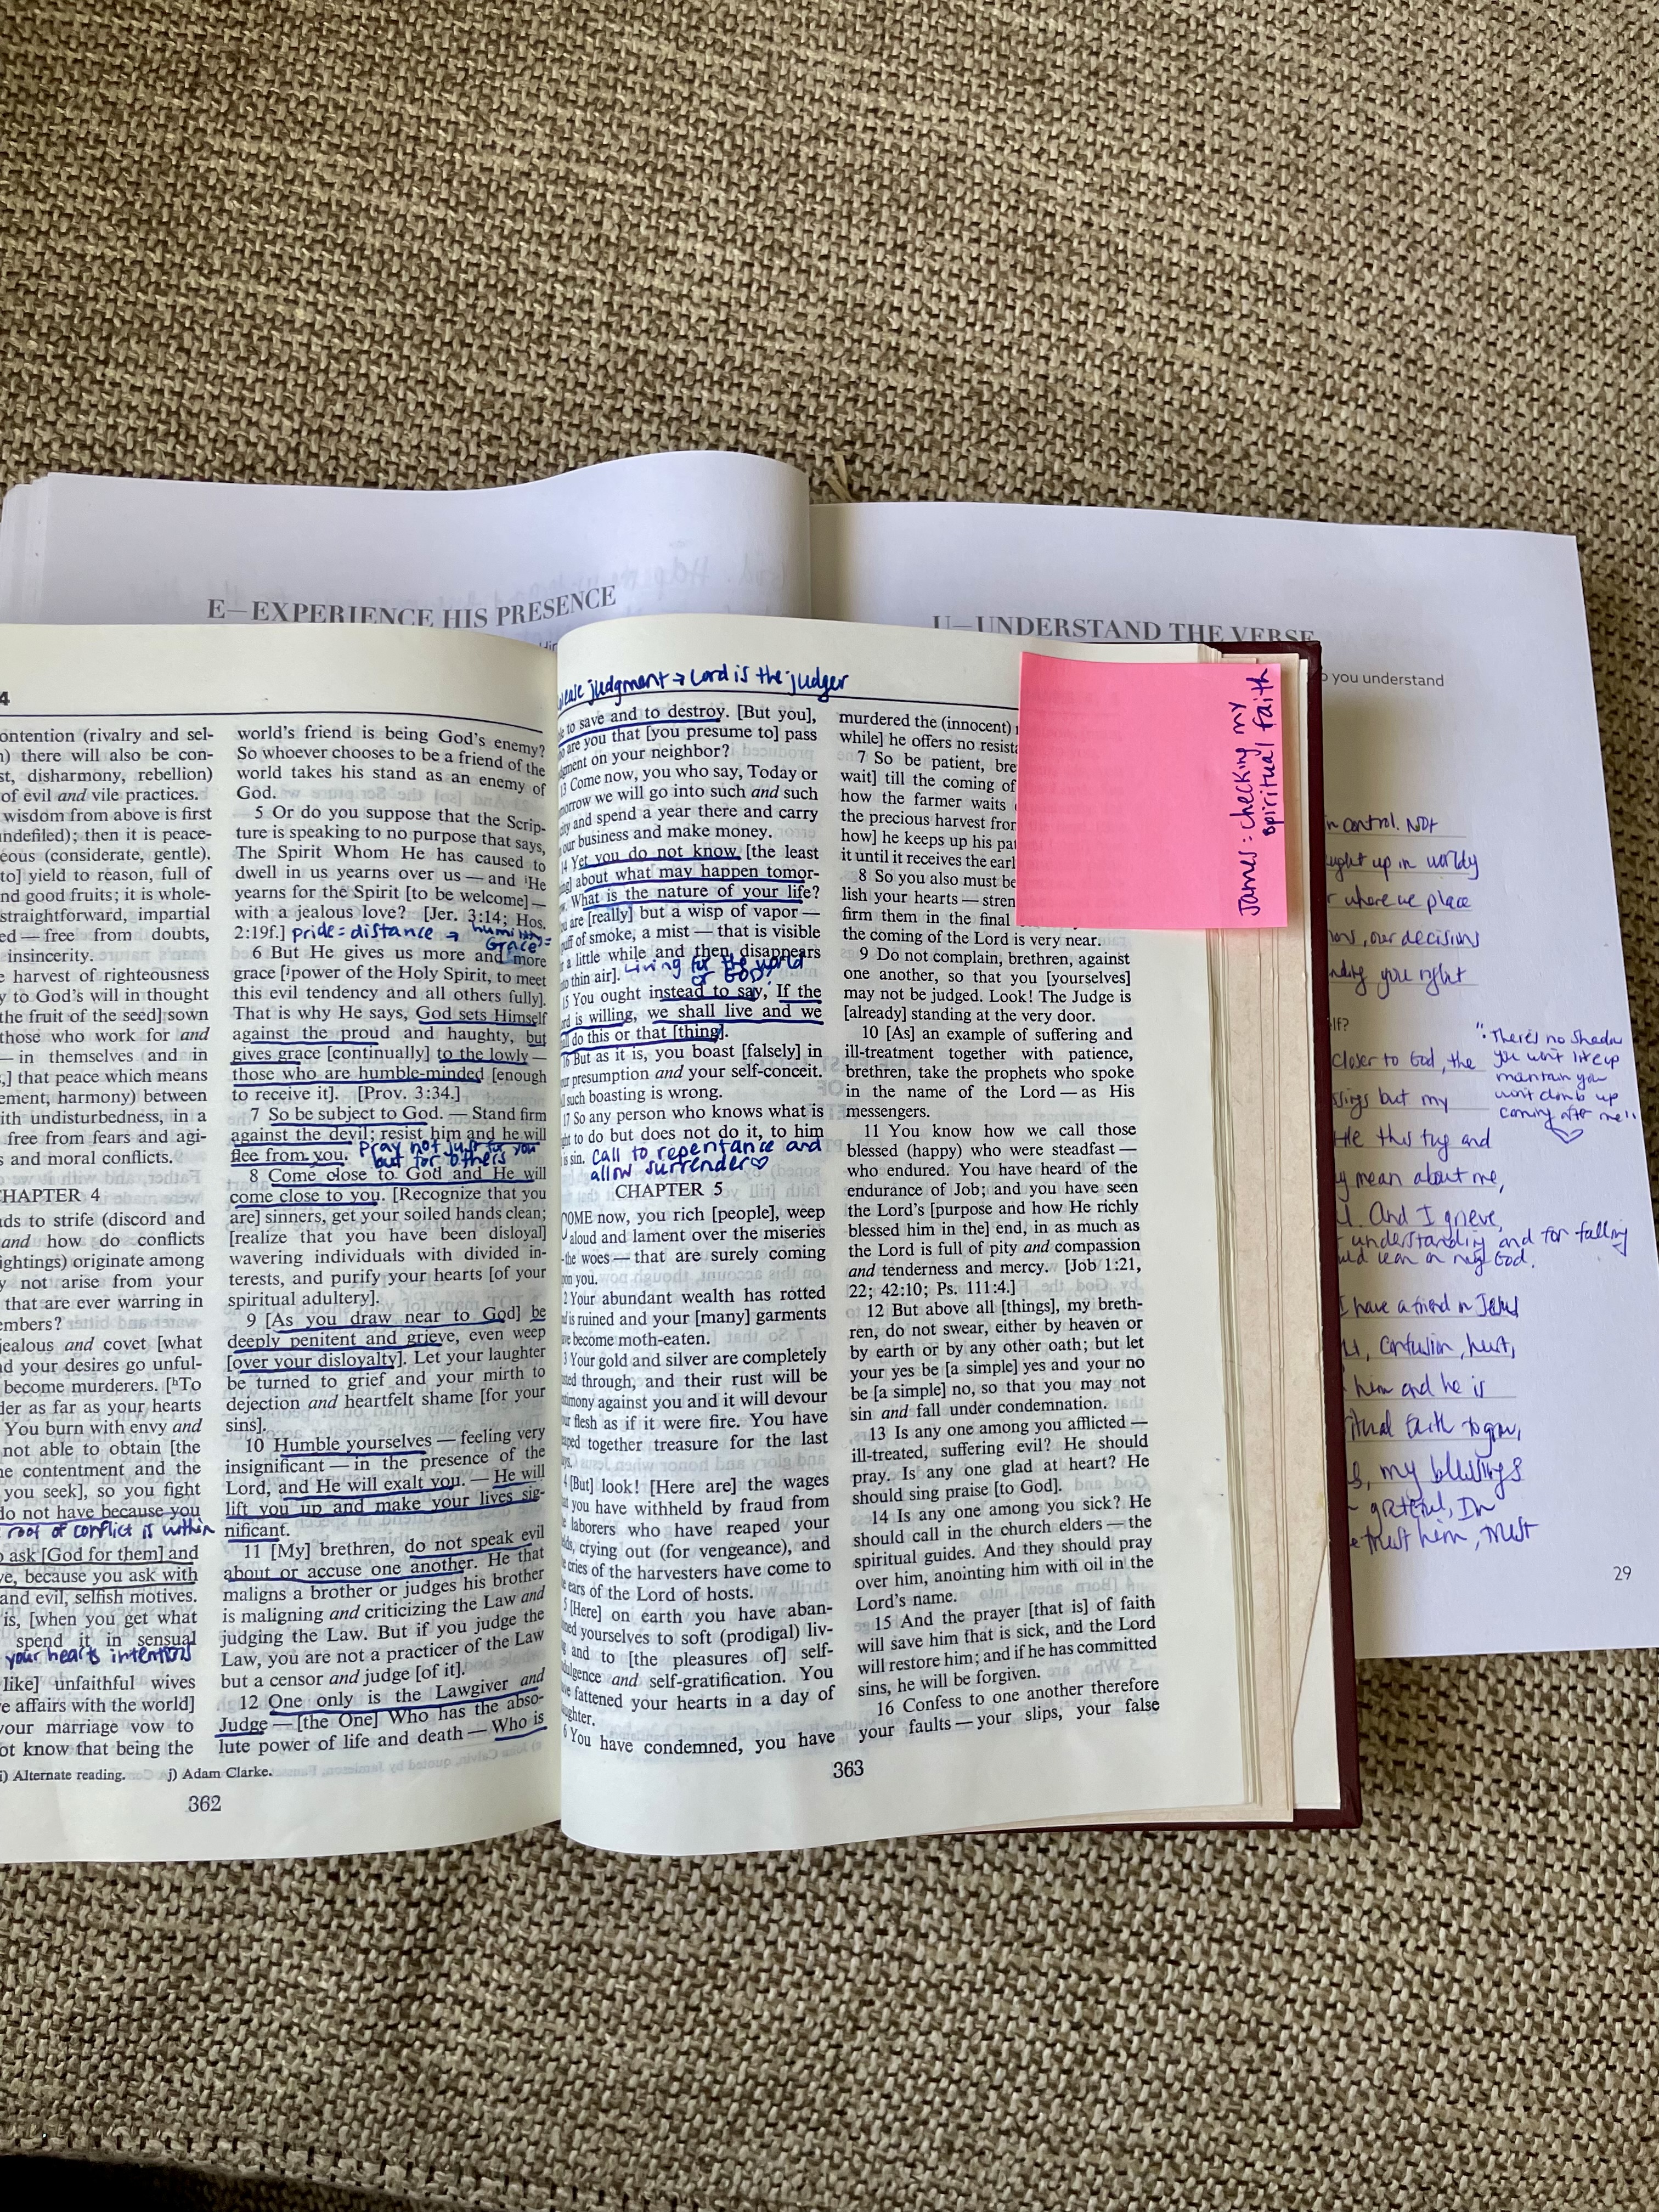 E—EXPERIENCE HIS PRESENCE
U—UNDERSTAND THE VERSE
you understand
4
ontention (rivalry and sel-
there will also be con-
st, disharmony, rebellion)
of evil and vile practices.
wisdom from above is first
ndefiled); then it is peace-
eous (considerate, gentle).
to] yield to reason, full of
nd good fruits; it is whole-
straightforward, impartial
ed — free from doubts,
insincerity.
e harvest of righteousness
y to God's will in thought
the fruit of the seed] sown
those who work for and
— in themselves and in
s,] that peace which means
ement, harmony) between
ith undisturbedness, in a
free from fears and agi-
s and moral conflicts.
HAPTER 4
ds to strife (discord and
and how do conflicts
ightings) originate among
y not arise from your
that are ever warring in
embers?
jealous and covet [what
nd your desires go unful-
become murderers. [hTo
der as far as your hearts
You burn with envy and
not able to obtain [the
he contentment and the
you seek], so you fight
do not have because you
root of conflict is within
o ask [God for them] and
ve, because you ask with
and evil, selfish motives.
is, [when you get what
spend it in sensual
your hearts intentions
like] unfaithful wives
e affairs with the world]
your marriage vow to
ot know that being the
world's friend is being God's enemy?
So whoever chooses to be a friend of the
world takes his stand as an enemy of
God.
5 Or do you suppose that the Scrip-
ture is speaking to no purpose that says,
The Spirit Whom He has caused to
dwell in us yearns over us — and iHe
yearns for the Spirit [to be welcome] —
with a jealous love? [Jer. 3:14; Hos.
2:19f.] pride = distance → humility =
Grace
6 But He gives us more and more
grace [jpower of the Holy Spirit, to meet
this evil tendency and all others fully].
That is why He says, God sets Himself
against the proud and haughty, but
gives grace [continually] to the lowly —
those who are humble-minded [enough
to receive it]. [Prov. 3:34.]
7 So be subject to God. — Stand firm
against the devil; resist him and he will
flee from you. Pray not just for you
but for others
8 Come close to God and He will
come close to you. [Recognize that you
are] sinners, get your soiled hands clean;
[realize that you have been disloyal]
wavering individuals with divided in-
terests, and purify your hearts [of your
spiritual adultery].
9 [As you draw near to God] be
deeply penitent and grieve, even weep
[over your disloyalty]. Let your laughter
be turned to grief and your mirth to
dejection and heartfelt shame [for your
sins].
10 Humble yourselves — feeling very
insignificant — in the presence of the
Lord, and He will exalt you. — He will
lift you up and make your lives sig-
nificant.
11 [My] brethren, do not speak evil
about or accuse one another. He that
maligns a brother or judges his brother
is maligning and criticizing the Law and
judging the Law. But if you judge the
Law, you are not a practicer of the Law
but a censor and judge [of it].
12 One only is the Lawgiver and
Judge — [the One] Who has the abso-
lute power of life and death — Who is
i) Alternate reading. j) Adam Clarke.
362
judgment → Lord is the judger
le to save and to destroy. [But you],
o are you that [you presume to] pass
gment on your neighbor?
13 Come now, you who say, Today or
morrow we will go into such and such
ity and spend a year there and carry
our business and make money.
14 Yet you do not know [the least
ng] about what may happen tomor-
w. What is the nature of your life?
are [really] but a wisp of vapor —
puff of smoke, a mist — that is visible
a little while and then disappears
to thin air]. Living for the world
or GOD?
15 You ought instead to say, If the
rd is willing, we shall live and we
ll do this or that [thing].
16 But as it is, you boast [falsely] in
ur presumption and your self-conceit.
l such boasting is wrong.
17 So any person who knows what is
ht to do but does not do it, to him
is sin. Call to repentance and
allow surrender♡
CHAPTER 5
COME now, you rich [people], weep
aloud and lament over the miseries
the woes — that are surely coming
pon you.
2 Your abundant wealth has rotted
d is ruined and your [many] garments
ve become moth-eaten.
3 Your gold and silver are completely
sted through, and their rust will be
stimony against you and it will devour
ur flesh as if it were fire. You have
aped together treasure for the last
ys.
4 [But] look! [Here are] the wages
at you have withheld by fraud from
e laborers who have reaped your
lds, crying out (for vengeance), and
cries of the harvesters have come to
e ears of the Lord of hosts.
5 [Here] on earth you have aban-
ned yourselves to soft (prodigal) liv-
g and to [the pleasures of] self-
dulgence and self-gratification. You
ve fattened your hearts in a day of
ughter.
6 You have condemned, you have
murdered the (innocent)
while] he offers no resista
7 So be patient, bre
wait] till the coming of
how the farmer waits
the precious harvest fror
how] he keeps up his pat
it until it receives the earl
8 So you also must be
lish your hearts — stren
firm them in the final
the coming of the Lord is very near.
9 Do not complain, brethren, against
one another, so that you [yourselves]
may not be judged. Look! The Judge is
[already] standing at the very door.
10 [As] an example of suffering and
ill-treatment together with patience,
brethren, take the prophets who spoke
in the name of the Lord — as His
messengers.
11 You know how we call those
blessed (happy) who were steadfast —
who endured. You have heard of the
endurance of Job; and you have seen
the Lord's [purpose and how He richly
blessed him in the] end, in as much as
the Lord is full of pity and compassion
and tenderness and mercy. [Job 1:21,
22; 42:10; Ps. 111:4.]
12 But above all [things], my breth-
ren, do not swear, either by heaven or
by earth or by any other oath; but let
your yes be [a simple] yes and your no
be [a simple] no, so that you may not
sin and fall under condemnation.
13 Is any one among you afflicted —
ill-treated, suffering evil? He should
pray. Is any one glad at heart? He
should sing praise [to God].
14 Is any one among you sick? He
should call in the church elders — the
spiritual guides. And they should pray
over him, anointing him with oil in the
Lord's name.
15 And the prayer [that is] of faith
will save him that is sick, and the Lord
will restore him; and if he has committed
sins, he will be forgiven.
16 Confess to one another therefore
your faults — your slips, your false
363
James: checking my
spiritual faith
in control. NOT
ught up in worldy
where we place
ons, our decisions
nding you right
lf?
closer to God, the
sings but my
He this tug and
mean about me,
And I grieve,
understanding and for falling
lean on my God.
I have a friend in Jesus
confusion, hurt,
him and he is
ritual faith to grow,
my blessings
grateful, I'm
trust him, trust
"There's no shadow
you won't lite up
mountain you
wont climb up
coming after me"
♡
29